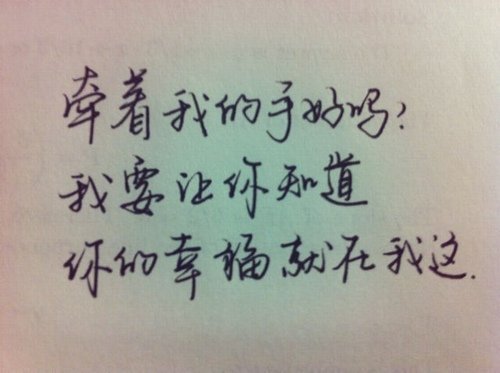 牵着我的手好吗?
我要让你知道
你的幸福就在我这.